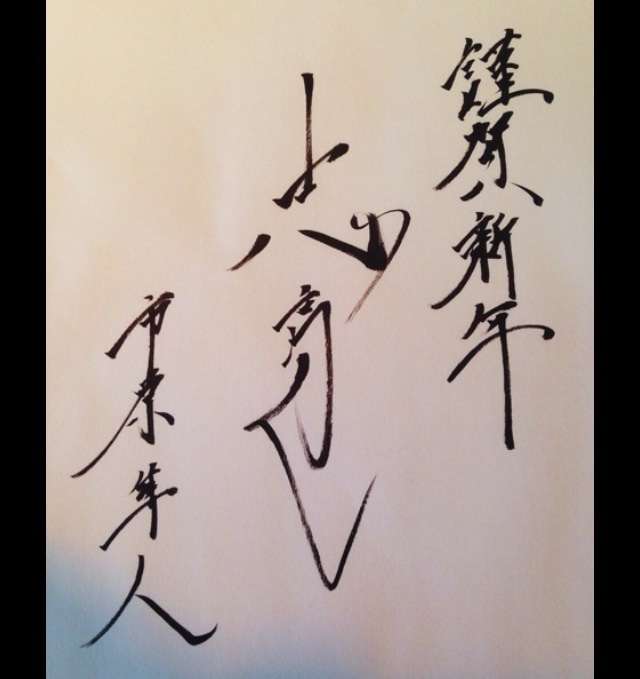 謹賀新年
志高く
市来隼人